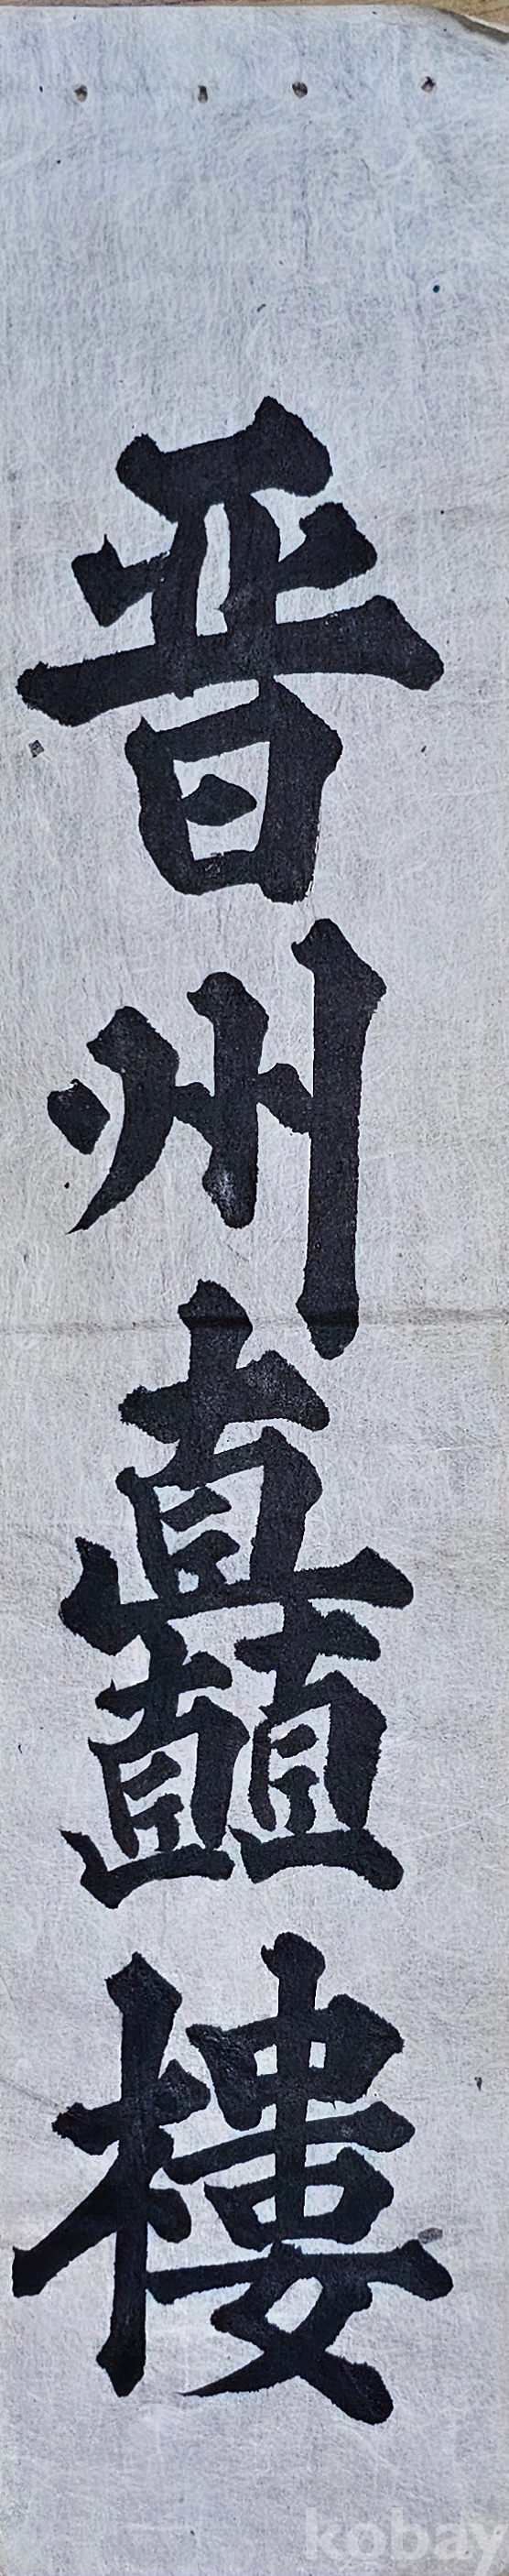 晋州矗樓
kobay